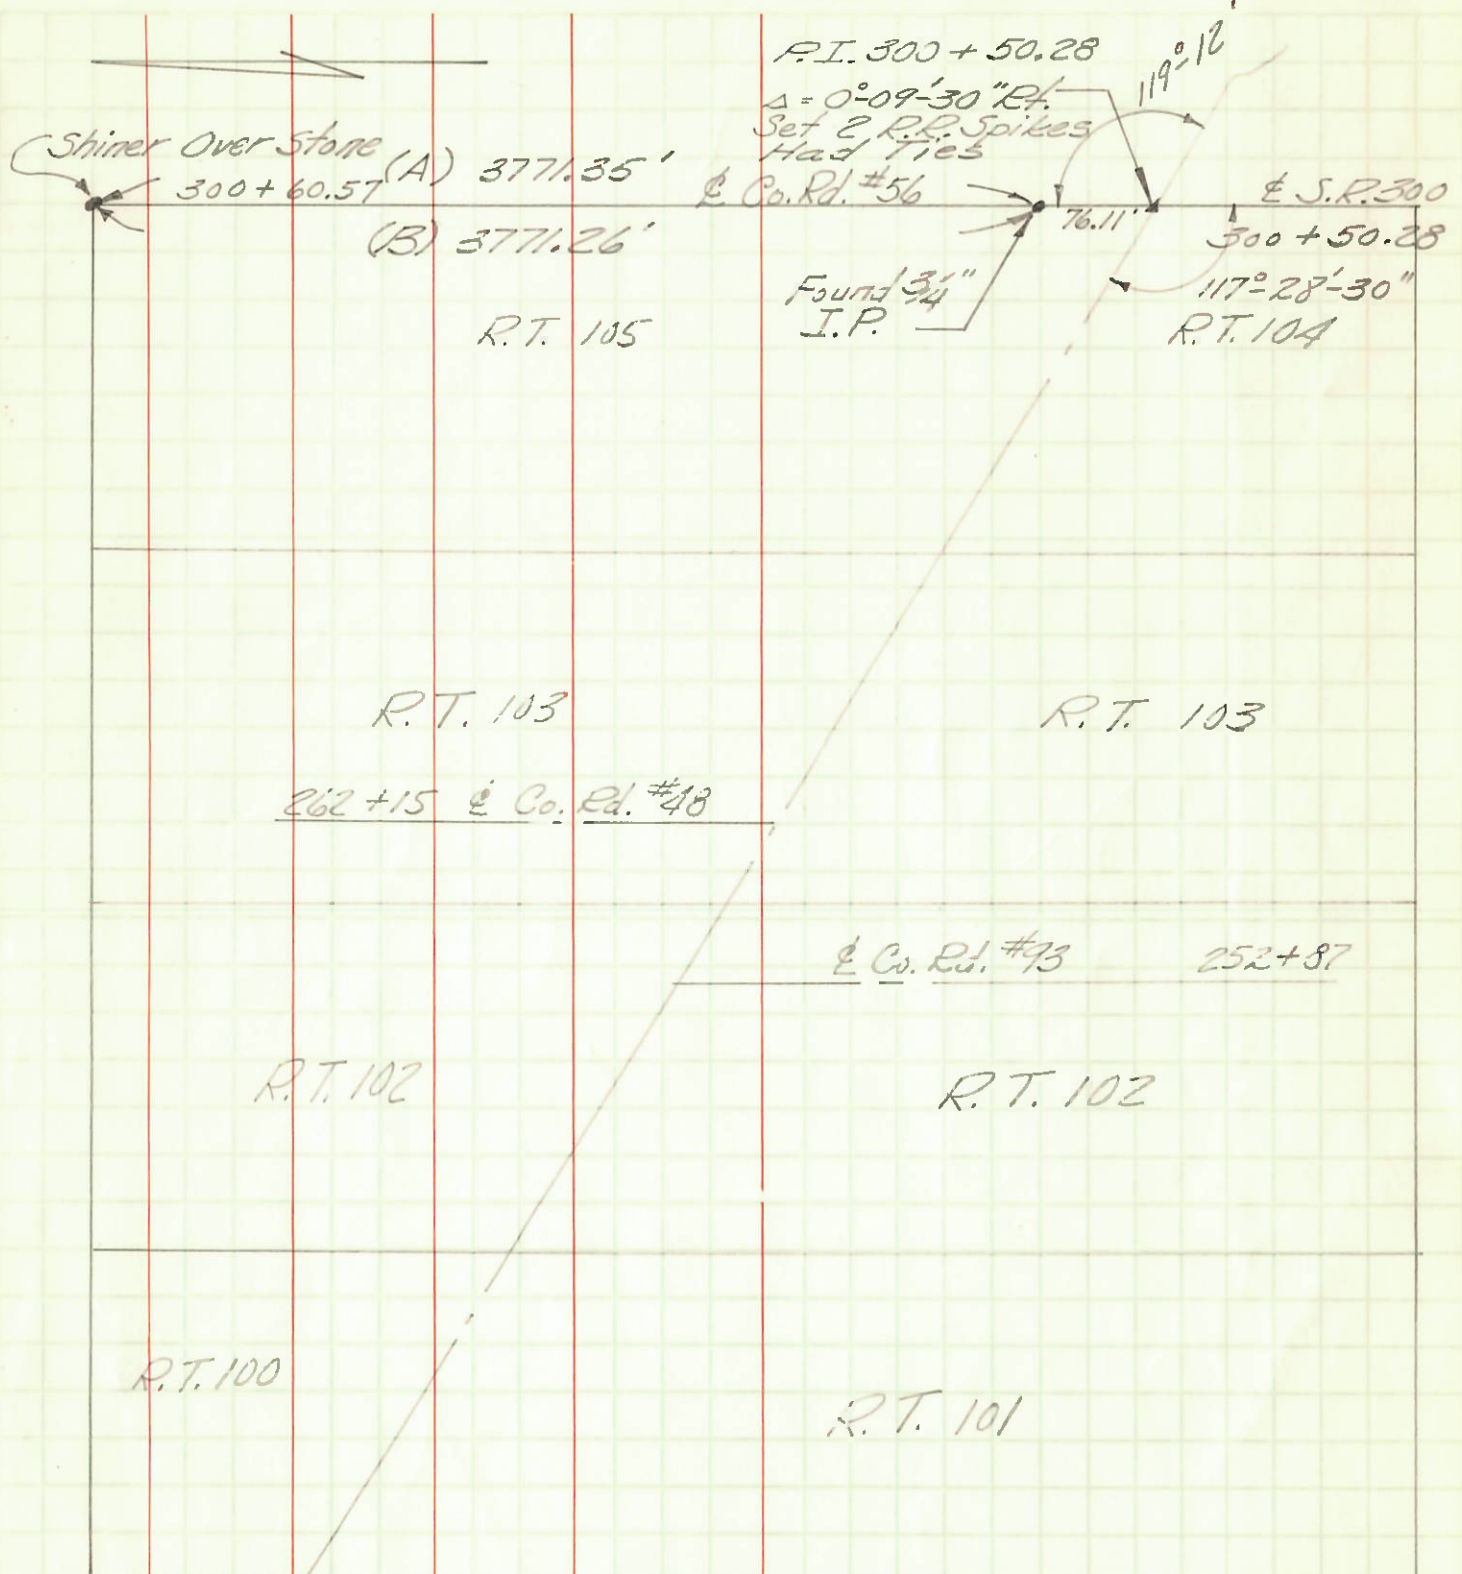 P.I. 300 + 50.28
119°-12'
Δ = 0°-09'-30" Rt.
Set 2 R.R. Spikes
Had Ties
Shiner Over Stone
300 + 60.57
(A) 3771.35'
℄ Co. Rd. #56
76.11'
℄ S.R. 300
(B) 3771.26'
300 + 50.28
Found 3/4"
I.P.
117°-28'-30"
R.T. 105
R.T. 104
R.T. 103
R.T. 103
262 +15 ℄ Co. Rd. #48
℄ Co. Rd. #93 252+87
R.T. 102
R.T. 102
R.T. 100
R.T. 101